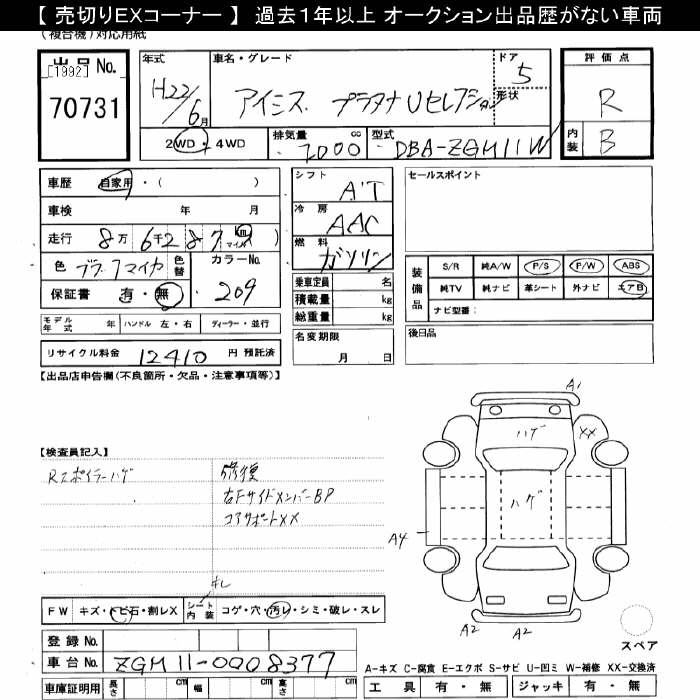 【 売切りEXコーナー 】 過去1年以上 オークション出品歴がない車両
(複合機)対応用紙
出品No.
[1992]
70731
年式 H22/6月
車名・グレード アイシス プラタナUセレクション
ドア 5
形状
2WD・4WD
排気量 2000 cc
型式 DBA-ZGM11W
評価点 R
内装 B
車歴 自家用・( )
車検 年 月
走行 8万 6千287 km マイル( )
色 ブラックマイカ 色替
カラーNo. 209
保証書 有・無
シフト AT
冷房 AAC
燃料 ガソリン
乗車定員 名
積載量 kg
総重量 kg
名変期限 月 日
セールスポイント
装備品
S/R 純A/W P/S P/W ABS
純TV 純ナビ 革シート 外ナビ エアB
ナビ型番:
後日品
モデル年式 年 ハンドル 左・右 ディーラー・並行
リサイクル料金 12410 円 預託済
【出品店申告欄(不良箇所・欠品・注意事項等)】
【検査員記入】
Rスポイラーハゲ
修復
右FサイドメンバーBP
コアサポートXX
キレ
FW キズ・トビ石・割レX
シート内装 コゲ・穴・汚レ・シミ・破レ・スレ
登録No.
車台No. ZGM11-0008377
車庫証明用 長さ cm 幅 cm 高さ cm
A1
ハゲ
XX
ハゲ
A4
A2
A2
スペア
A-キズ C-腐食 E-エクボ S-サビ U-凹ミ W-補修 XX-交換済
工具 有・無 ジャッキ 有・無